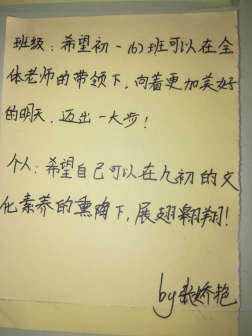 班级：希望初一(6)班可以在全
体老师的带领下，向着更加美好
的明天，迈出一大步！
个人：希望自己可以在九初的文
化素养的熏陶下，展翅翱翔！
by张娇艳